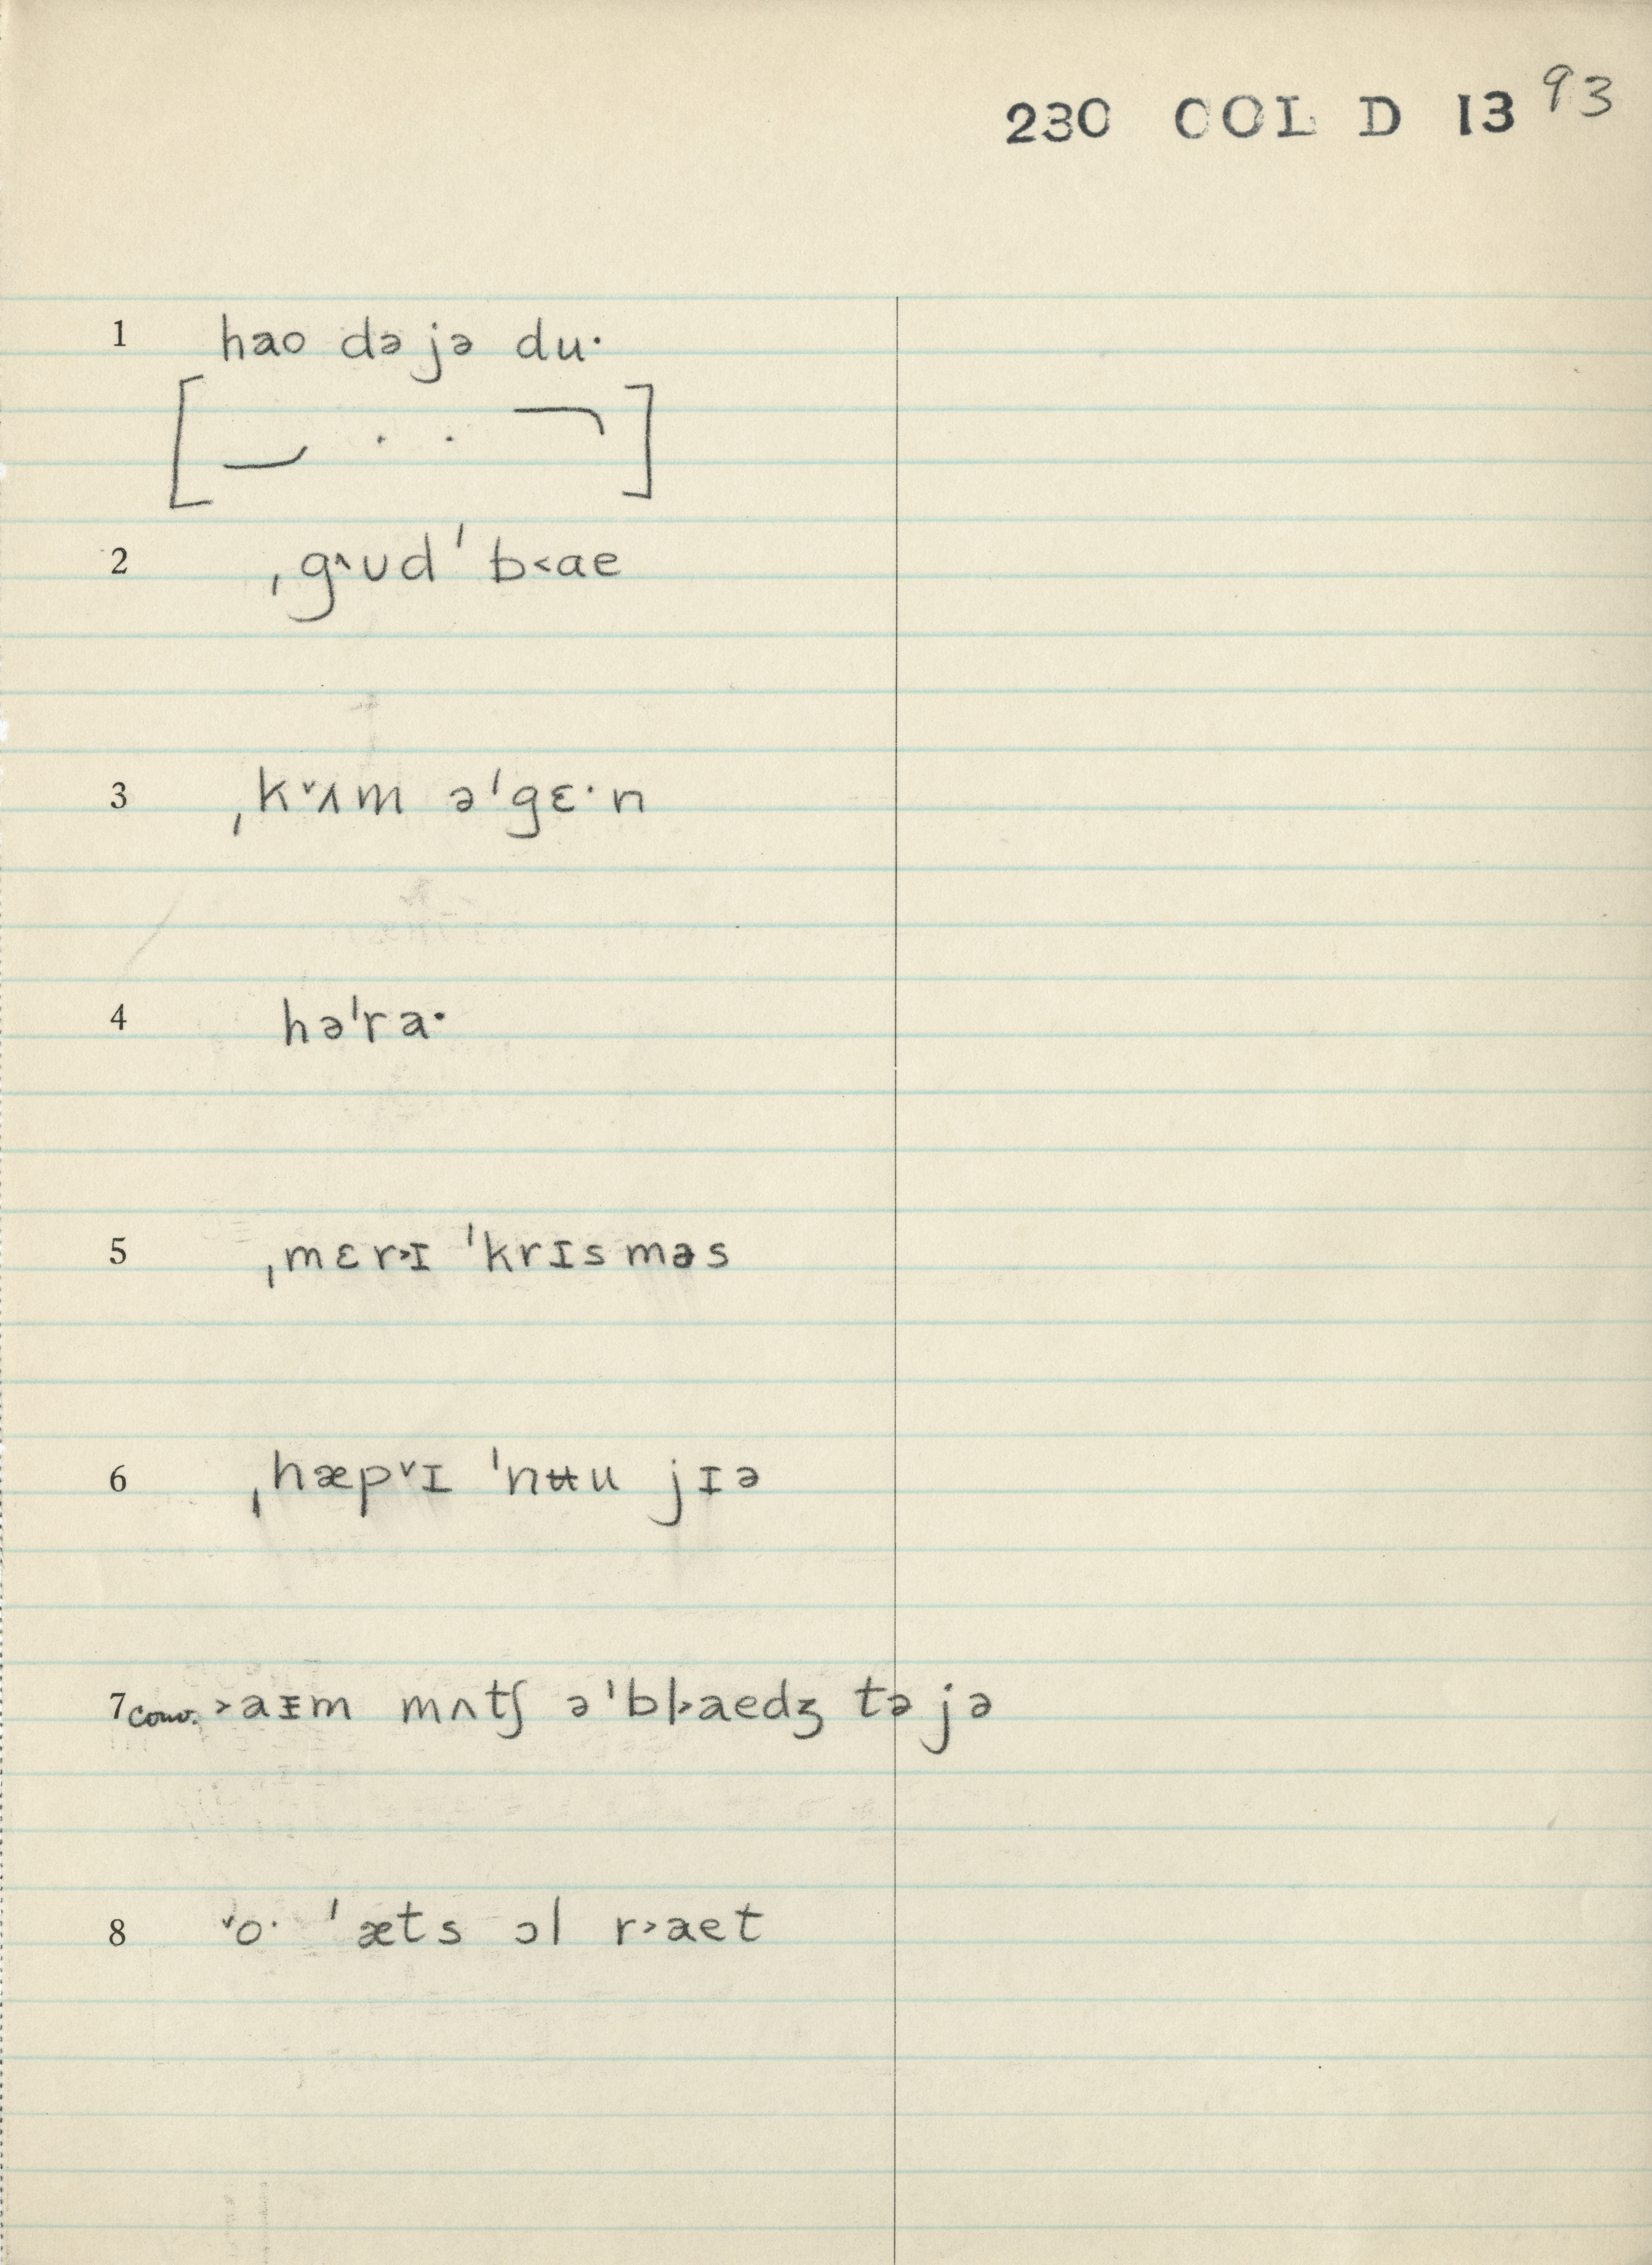 230 COL D 13 93
1 hao də jə du·
2 ˌg˄ud ˈb˂ae
3 ˌk˅ʌm əˈgɛ·n
4 həˈra·
5 ˌmɛr˃ɪ ˈkrɪsməs
6 ˌhæp˅ɪ ˈnʉu jɪə
7 conv. ˃aɪ̵m mʌtʃ əˈbl˃aedʒ tə jə
8 ˅o· ˈæts ɔl r˃aet